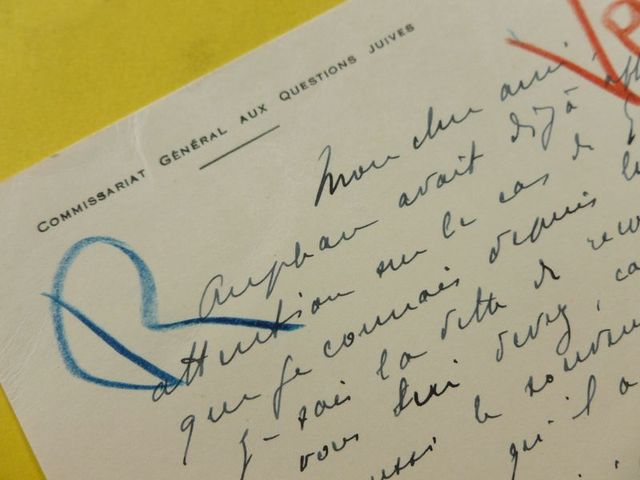 COMMISSARIAT GÉNÉRAL AUX QUESTIONS JUIVES
Mon cher ami
avait déjà
attention sur le cas de
que je connais depuis
je sais la dette de
vous lui devez,
aussi le
qu'il a